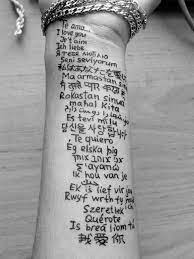 Te amo
I love you
Je t'aim
Ich liebe
Seni seviyorum
Ma armastan
Rokastan sinua
mahal Kita
Es tevi mīlu
당신을 사랑합니다
Te quiero
Eg elska þig
Ik hou van je
Ek is lief vir jou
Rwyf wrth fy
Szeretlek
Quérote
Is breá liom tú
我愛你